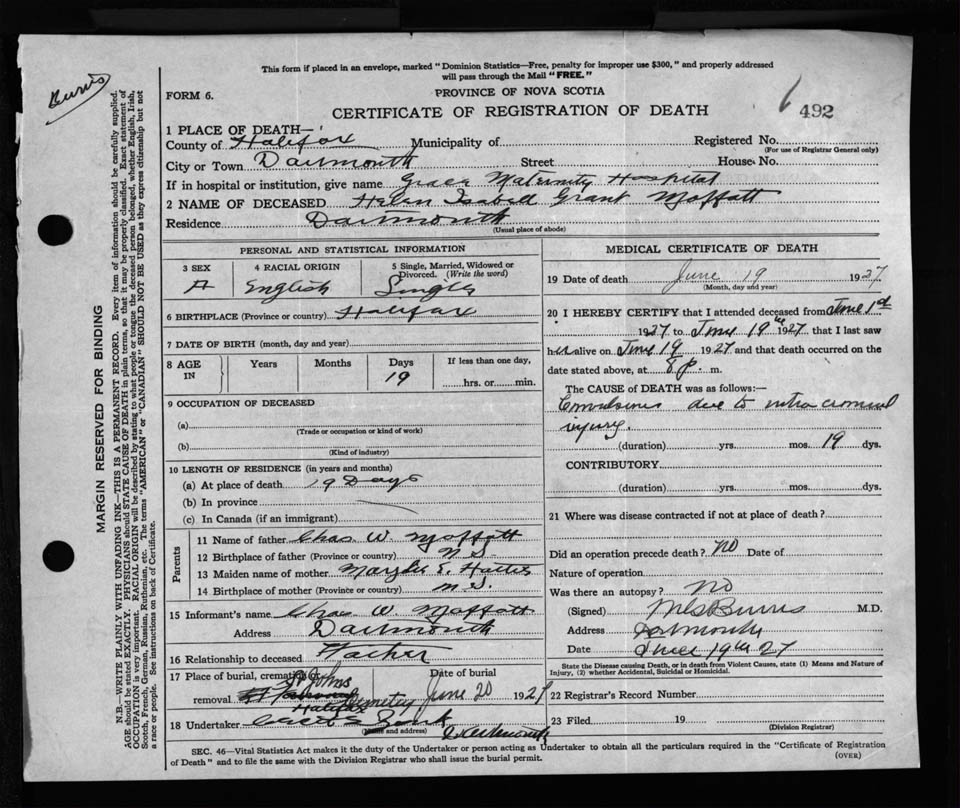 This form if placed in an envelope, marked "Dominion Statistics—Free, penalty for improper use $300," and properly addressed
will pass through the Mail "FREE."
Burris
FORM 6.
PROVINCE OF NOVA SCOTIA
CERTIFICATE OF REGISTRATION OF DEATH
492
1 PLACE OF DEATH—
County of Halifax Municipality of Registered No.
(For use of Registrar General only)
City or Town Dartmouth Street House No.
If in hospital or institution, give name Grace Maternity Hospital
2 NAME OF DECEASED Helen Isabell Grant Moffatt
Residence Dartmouth
(Usual place of abode)
MARGIN RESERVED FOR BINDING
N.B.—WRITE PLAINLY WITH UNFADING INK—THIS IS A PERMANENT RECORD. Every item of information should be carefully supplied.
AGE should be stated EXACTLY. PHYSICIANS should STATE CAUSE OF DEATH in plain terms, so that it may be properly classified. Exact statement of
OCCUPATION is very important. RACIAL ORIGIN will be described by stating to what people or tongue the deceased person belonged, whether English, Irish,
Scotch, French, German, Russian, Ruthenian, etc. The terms "AMERICAN" or "CANADIAN" SHOULD NOT BE USED as they express citizenship but not
a race or people. See instructions on back of Certificate.
PERSONAL AND STATISTICAL INFORMATION
3 SEX 4 RACIAL ORIGIN 5 Single, Married, Widowed or
Divorced. (Write the word)
English Single
6 BIRTHPLACE (Province or country) Halifax
7 DATE OF BIRTH (month, day and year)
8 AGE IN Years Months Days If less than one day,
19 hrs. or min.
9 OCCUPATION OF DECEASED
(a)
(Trade or occupation or kind of work)
(b)
(Kind of industry)
10 LENGTH OF RESIDENCE (in years and months)
(a) At place of death 19 Days
(b) In province
(c) In Canada (if an immigrant)
Parents
11 Name of father Chas W. Moffatt
12 Birthplace of father (Province or country) N S.
13 Maiden name of mother E.
14 Birthplace of mother (Province or country) N. S.
15 Informant's name Chas W. Moffatt
Address Dartmouth
16 Relationship to deceased Father
17 Place of burial, cremation or St Johns Date of burial
removal Cemetery June 20 1927
Halifax
18 Undertaker
(Name and address) Dartmouth
MEDICAL CERTIFICATE OF DEATH
19 Date of death June 19 1927
(Month, day and year)
20 I HEREBY CERTIFY that I attended deceased from June 1st
1927 to June 19th 1927 that I last saw
her alive on June 19 1927 and that death occurred on the
date stated above, at 8 p. m.
The CAUSE of DEATH was as follows:—
Convulsions due to intra cranial
injury.
(duration) yrs. mos. 19 dys.
CONTRIBUTORY
(duration) yrs. mos. dys.
21 Where was disease contracted if not at place of death?
Did an operation precede death? No Date of
Nature of operation
Was there an autopsy? No
(Signed) Burris M.D.
Address Dartmouth
Date June 19th 27
State the Disease causing Death, or in death from Violent Causes, state (1) Means and Nature of
Injury, (2) whether Accidental, Suicidal or Homicidal.
22 Registrar's Record Number
23 Filed 19
(Division Registrar)
SEC. 46—Vital Statistics Act makes it the duty of the Undertaker or person acting as Undertaker to obtain all the particulars required in the "Certificate of Registration
of Death" and to file the same with the Division Registrar who shall issue the burial permit.
(OVER)